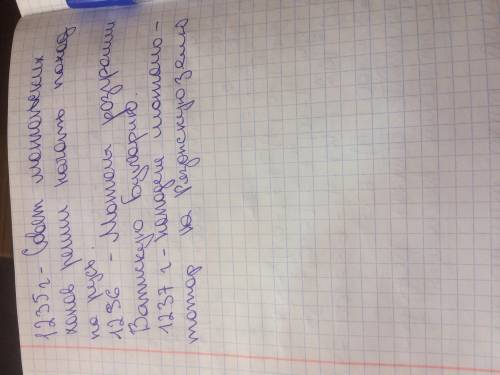 1235 г - Совет монгольских
ханов решил начать поход
на русь.
1236 - Монголы разграмили
Волжскую Булгарию.
1237 г - нападение монголо-
татар на Рязанскую землю